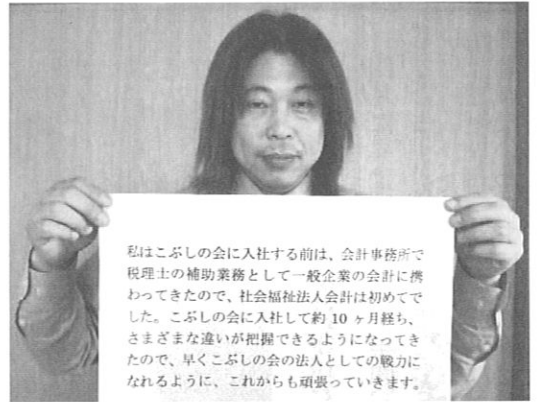 私はこぶしの会に入社する前は、会計事務所で
税理士の補助業務として一般企業の会計に携
わってきたので、社会福祉法人会計は初めてで
した。こぶしの会に入社して約 10 ヶ月経ち、
さまざまな違いが把握できるようになってき
たので、早くこぶしの会の法人としての戦力に
なれるように、これからも頑張っていきます。